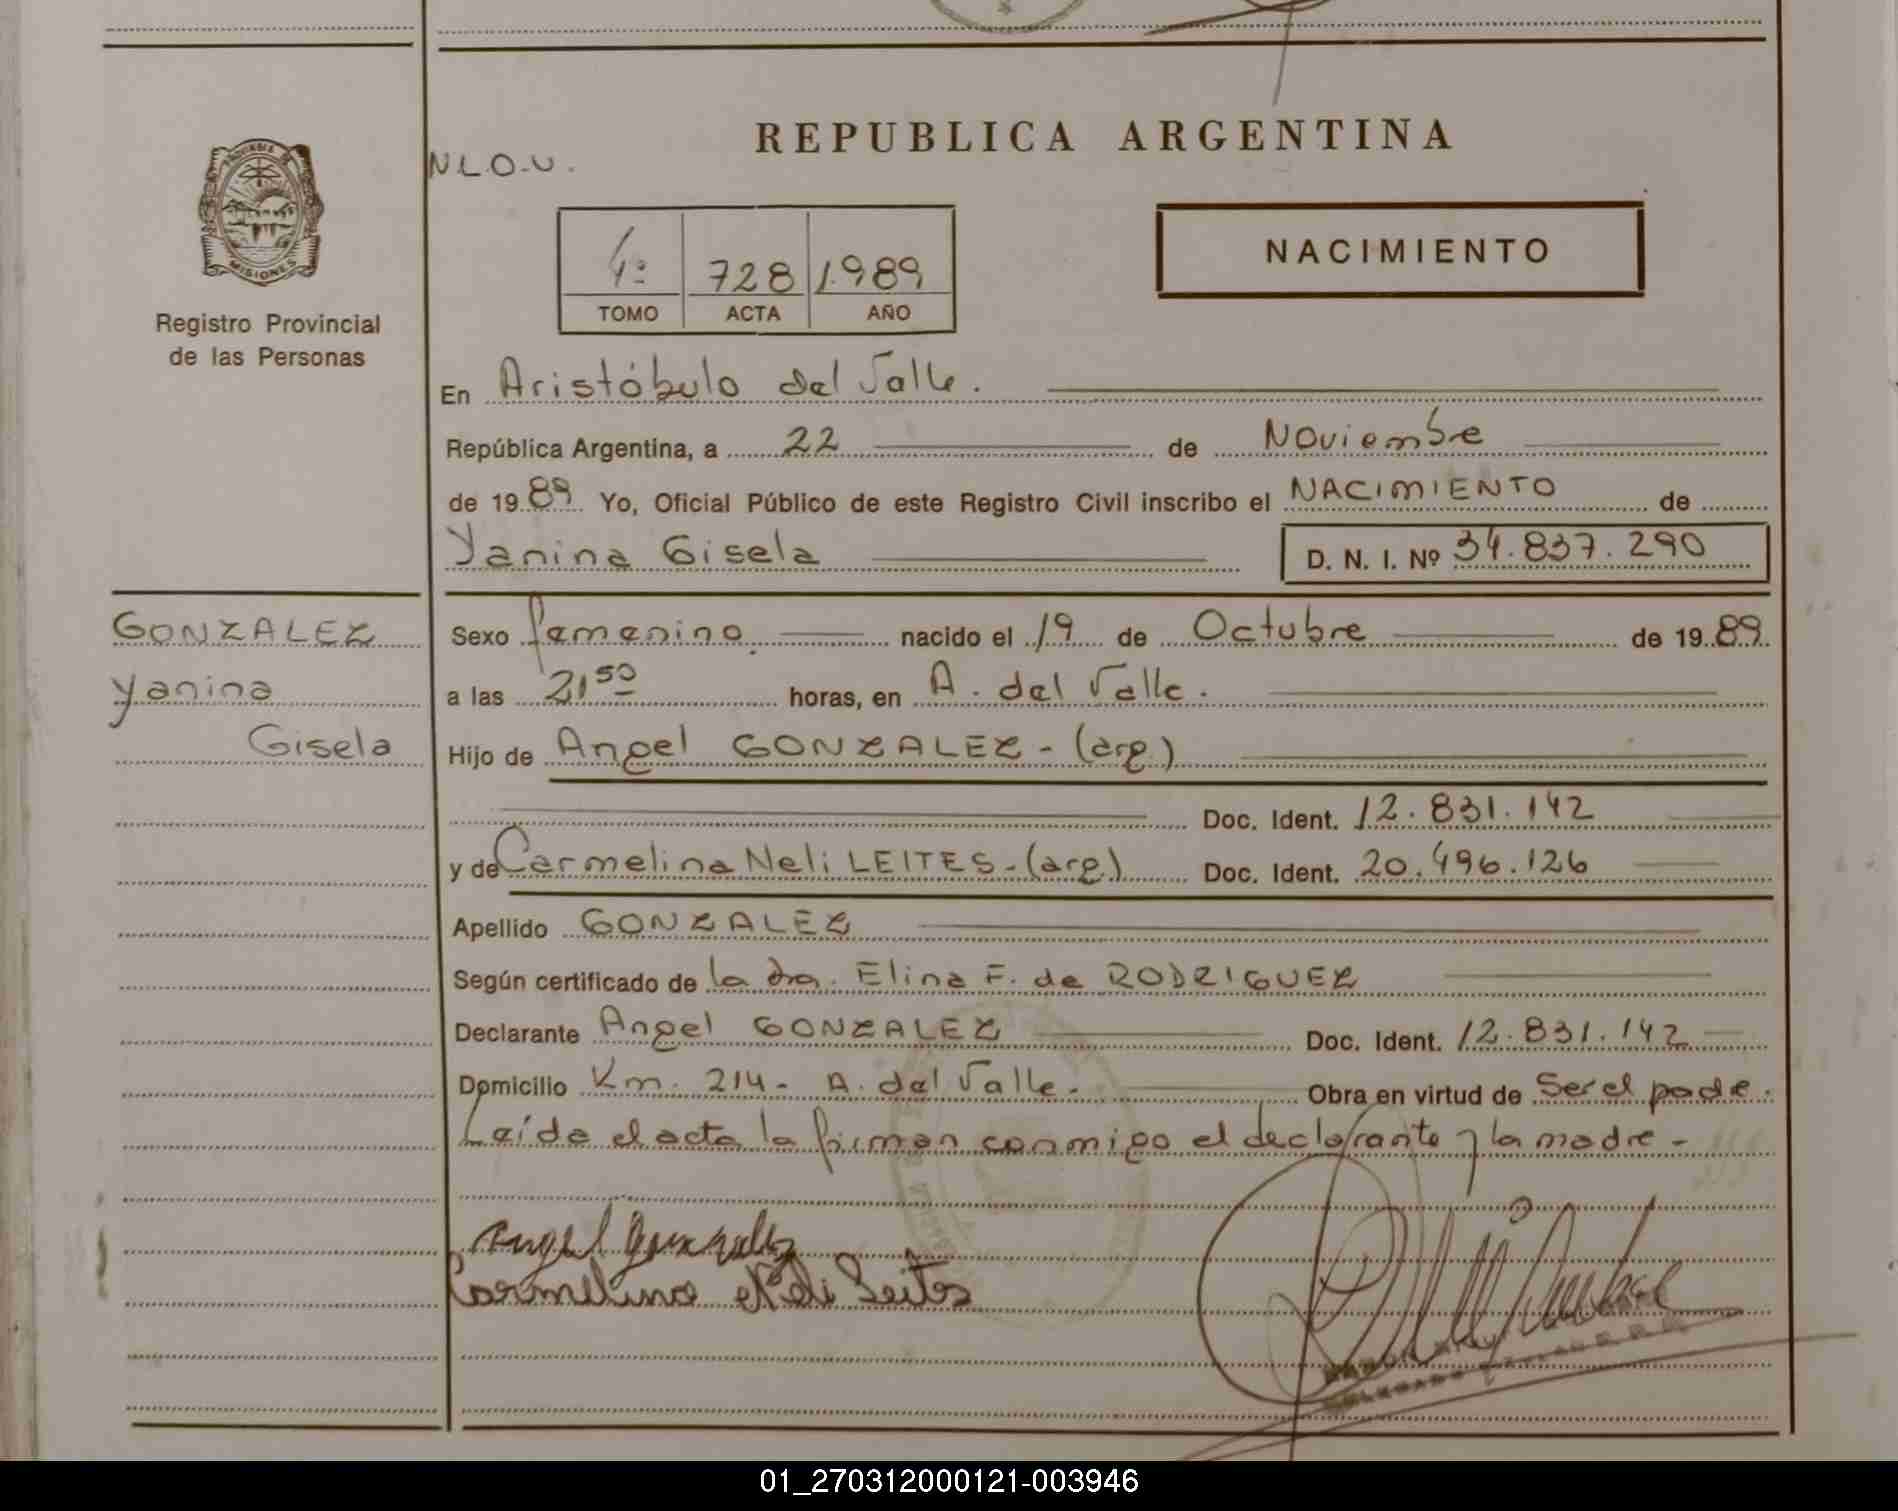 REPUBLICA ARGENTINA
N.L.O.U.
PROVINCIA DE
MISIONES
Registro Provincial
de las Personas
4º 728 1.989
TOMO ACTA AÑO
NACIMIENTO
En Aristóbulo del Valle.
República Argentina, a 22 de Noviembre
de 1989 Yo, Oficial Público de este Registro Civil inscribo el NACIMIENTO de
Yanina Gisela D. N. I. Nº 34.837.290
GONZALEZ
Yanina
Gisela
Sexo femenino nacido el 19 de Octubre de 1989
a las 21,50 horas, en A. del Valle.
Hijo de Angel GONZALEZ - (arg.)
Doc. Ident. 12.831.142
y de Carmelina Neli LEITES - (arg.) Doc. Ident. 20.496.126
Apellido GONZALEZ
Según certificado de la dra. Elina F. de RODRIGUEZ
Declarante Angel GONZALEZ Doc. Ident. 12.831.142
Domicilio Km. 214 - A. del Valle. Obra en virtud de Ser el padre.
Leída el acta la firman conmigo el declarante y la madre -
Angel Gonzalez
Carmelina Neli Leites
01_270312000121-003946